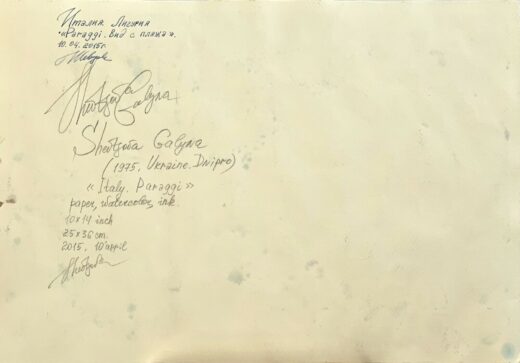 Италия. Лигурия
"Paraggi. Вид с пляжа".
10.04.2015г.
Galyna
Shevtsova Galyna
(1975, Ukraine. Dnipro)
"Italy. Paraggi"
paper, watercolor, ink.
10x14 inch
25x36 cm.
2015, 10 april